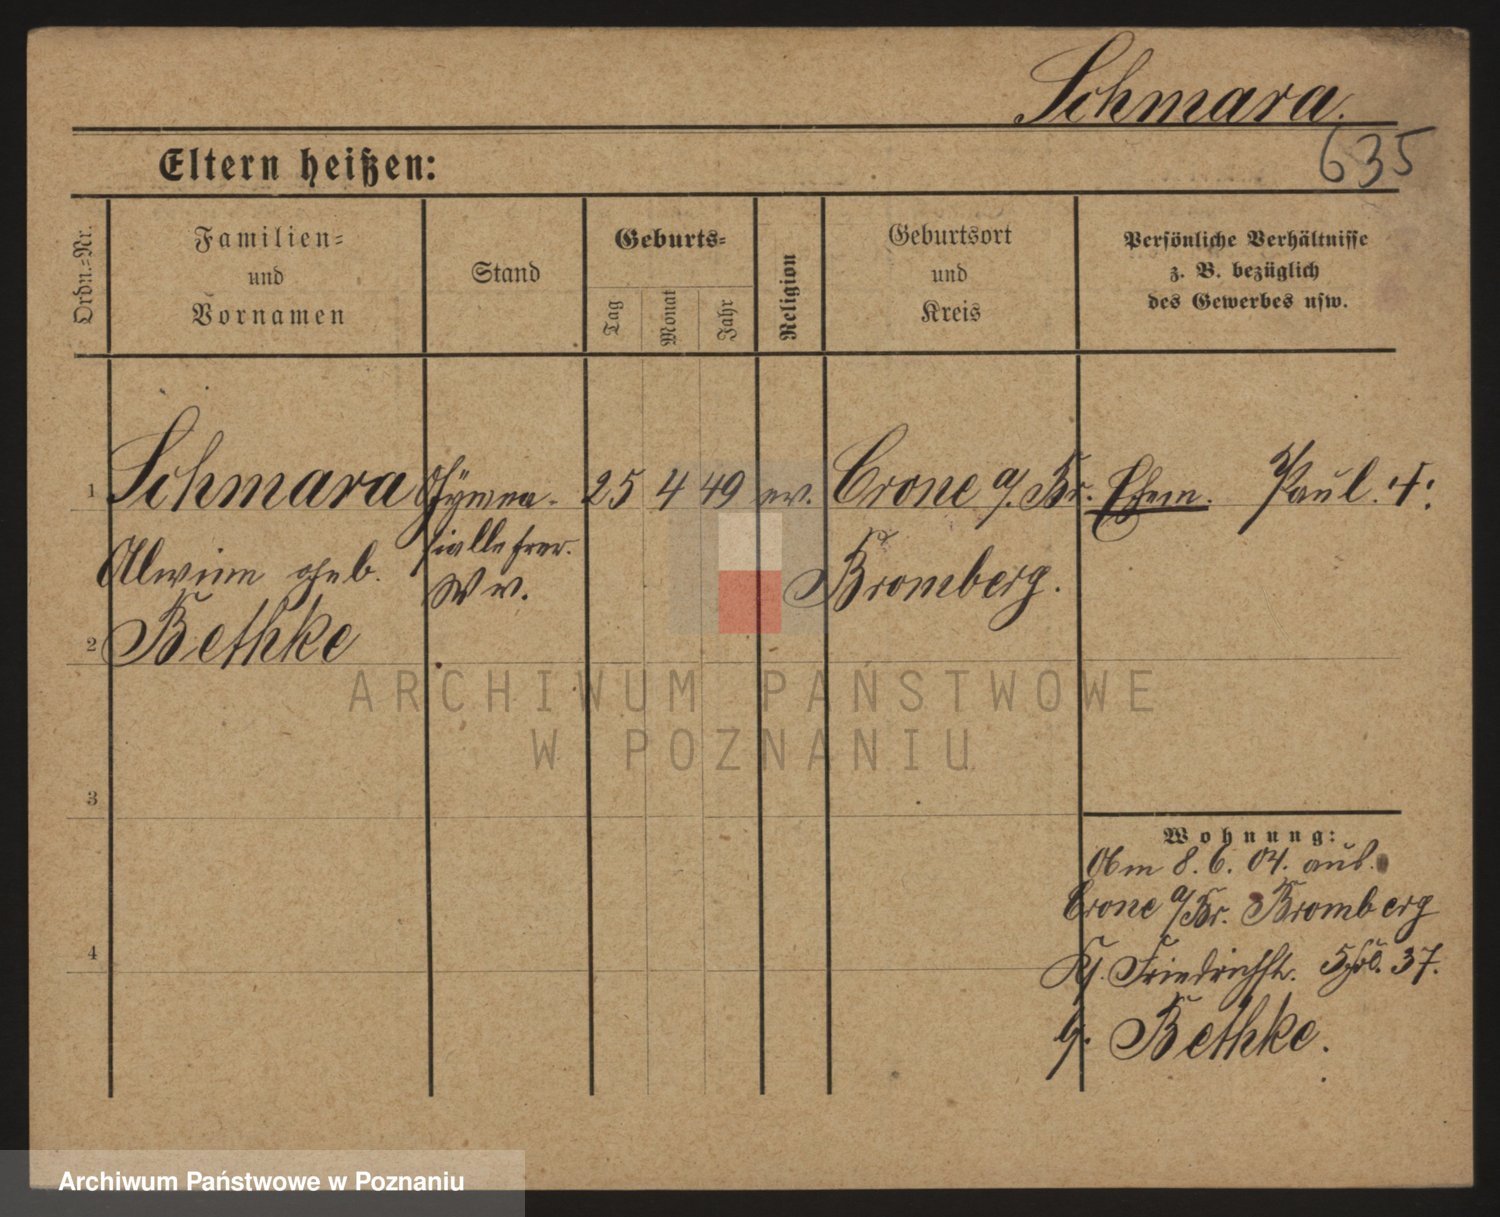 Schmara.
635
Eltern heißen:
Ordn.-Nr.
Familien-
und
Vornamen
Stand
Geburts-
Tag
Monat
Jahr
Religion
Geburtsort
und
Kreis
Persönliche Verhältnisse
z. B. bezüglich
des Gewerbes usw.
1 Schmara Gymna- 25 4 49 ev. Crone a/. Br. Ehem. Paul. †.
Alwine geb. siallehrer. Bromberg.
Ww.
2 Bethke
ARCHIWUM PAŃSTWOWE
W POZNANIU
3
Wohnung:
8. 6. 04. aus.
Crone a/Br. Bromberg
4
Friedrichstr. 37.
b. Bethke.
Archiwum Państwowe w Poznaniu